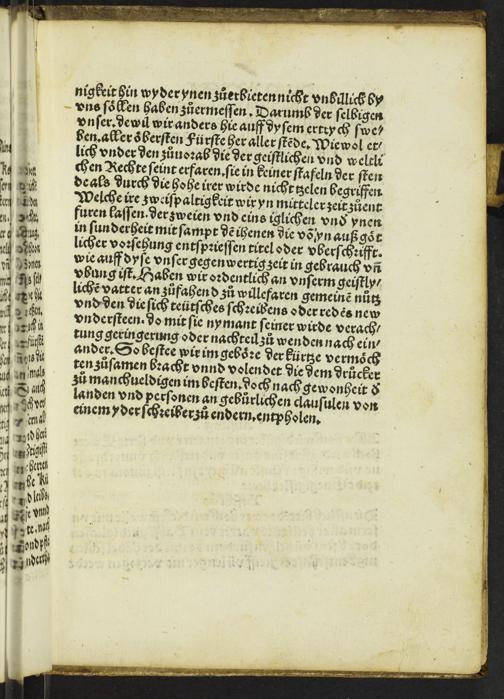 nigkeit hin wyder ynen zůerbieten nicht vnbillich by
vns söllen haben zůermessen. Darumb der selbigen
vnser. de wil wir anders hie auff dysem ertrych swe⸗
ben. aller öbersten Fürste her aller stēde. Wiewol et⸗
lich vnder den zůuorab die der geistlichen vnd weltli
chen Rechte seint erfaren. sie in keiner stafeln der sten
de als durch die hohe irer wirde nicht tzelen begriffen
Welche ire zweispaltigkeit wir yn mitteler zeit zůent
furen lassen. der zweien vnd eins iglichen vnd ynen
in sunderheit mit sampt dē ihenen die vō yn auß göt
licher vorsehung entspriessen titel oder vberschrifft.
wie auff dyse vnser gegenwertig zeit in gebrauch vn̄
vbung ist. Haben wir ordentlich an vnserm geistly⸗
lichē vatter an zůfahend zů willefaren gemeinē nůtz
vnd den die sich teütsches schreibens oder redēs new
vndersteen. do mit sie nymant seiner wirde verach⸗
tung geringerung oder nachteil zů wenden nach ein⸗
ander. So bestee wir im gehöre der kürtze vermöch
ten zůsamen bracht vnnd volendet die dem drücker
zů manchueldigen im besten. doch nach gewonheit d̄
landen vnd personen an gebürlichen clausulen von
einem yder schreiber zů endern. entpholen.